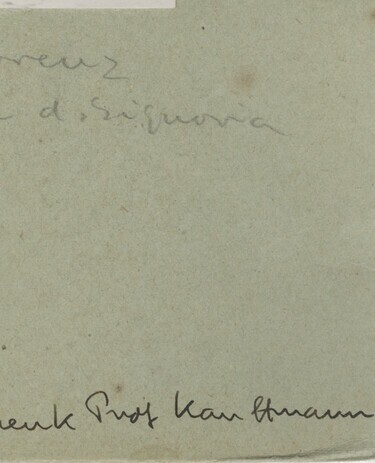 orenz
a d. Signoria
henk Prof Kauffmann